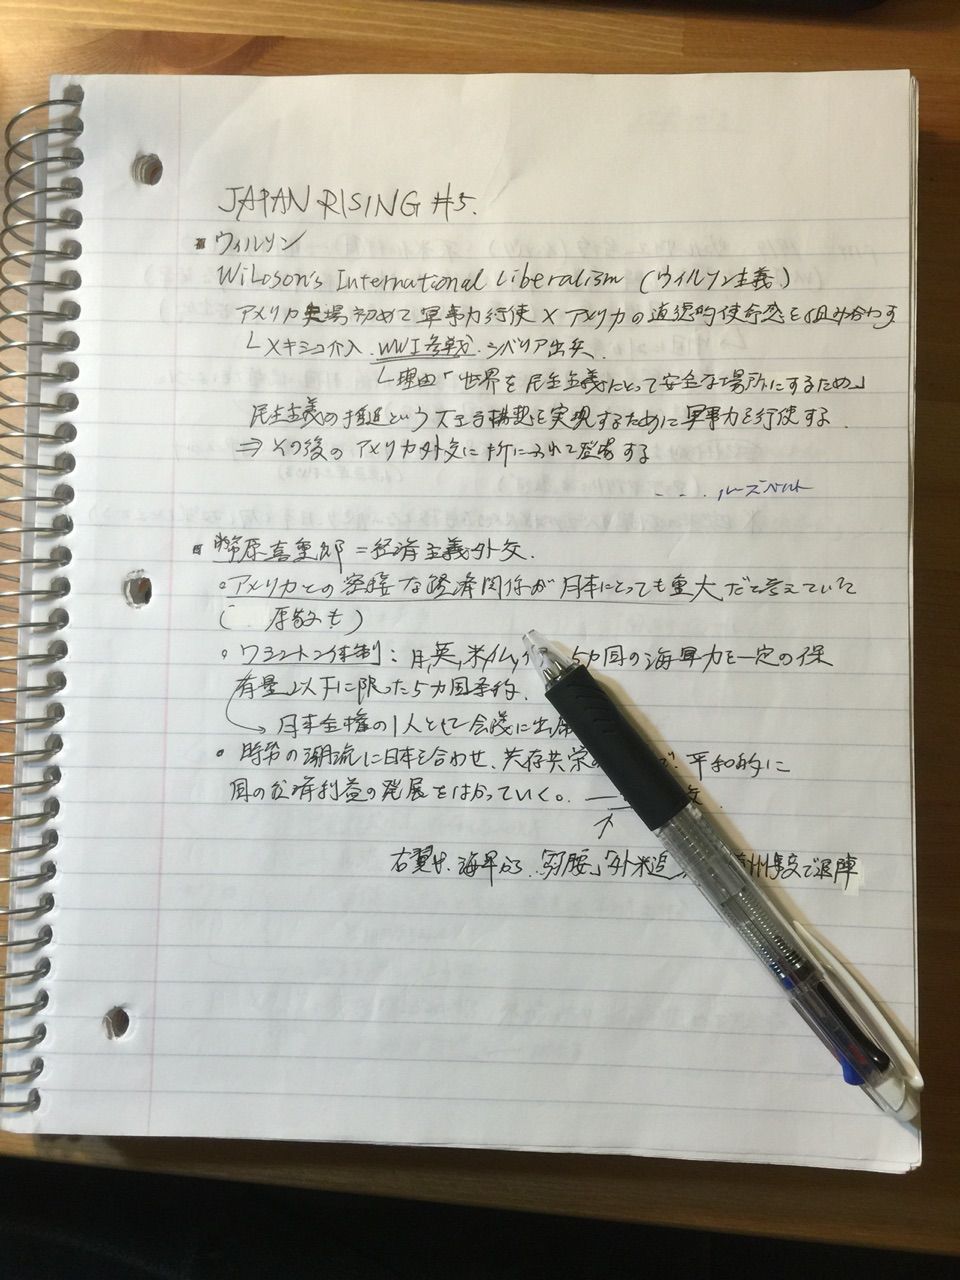 JAPAN RISING #5.
ウィルソン
WiLoson's International Liberalism (ウィルソン主義)
アメリカ 初めて軍事力行使×アメリカの道徳的使命感を組み合わす
メキシコ介入、WWI参戦、シベリア出兵.
理由「世界を民主主義にとって安全な場所にするため」
民主主義の推進という 構想を実現するために軍事力を行使する.
⇒その後のアメリカ外交に折にふれて登場する
... ルーズベルト
幣原喜重郎=経済主義外交.
・アメリカとの密接な経済関係が日本にとっても重大だと考えていた
( 原敬も)
・ワシントン体制:日,英,米,仏, 5カ国の海軍力を一定の保
有量以下に限った5カ国条約.
→日本全権の1人として会議に出席
・時勢の潮流に日本を合わせ、共存共栄の で、平和的に
国の経済利益の発展をはかっていく。
↑
右翼や海軍から「弱腰」「対米追 州事変で退陣